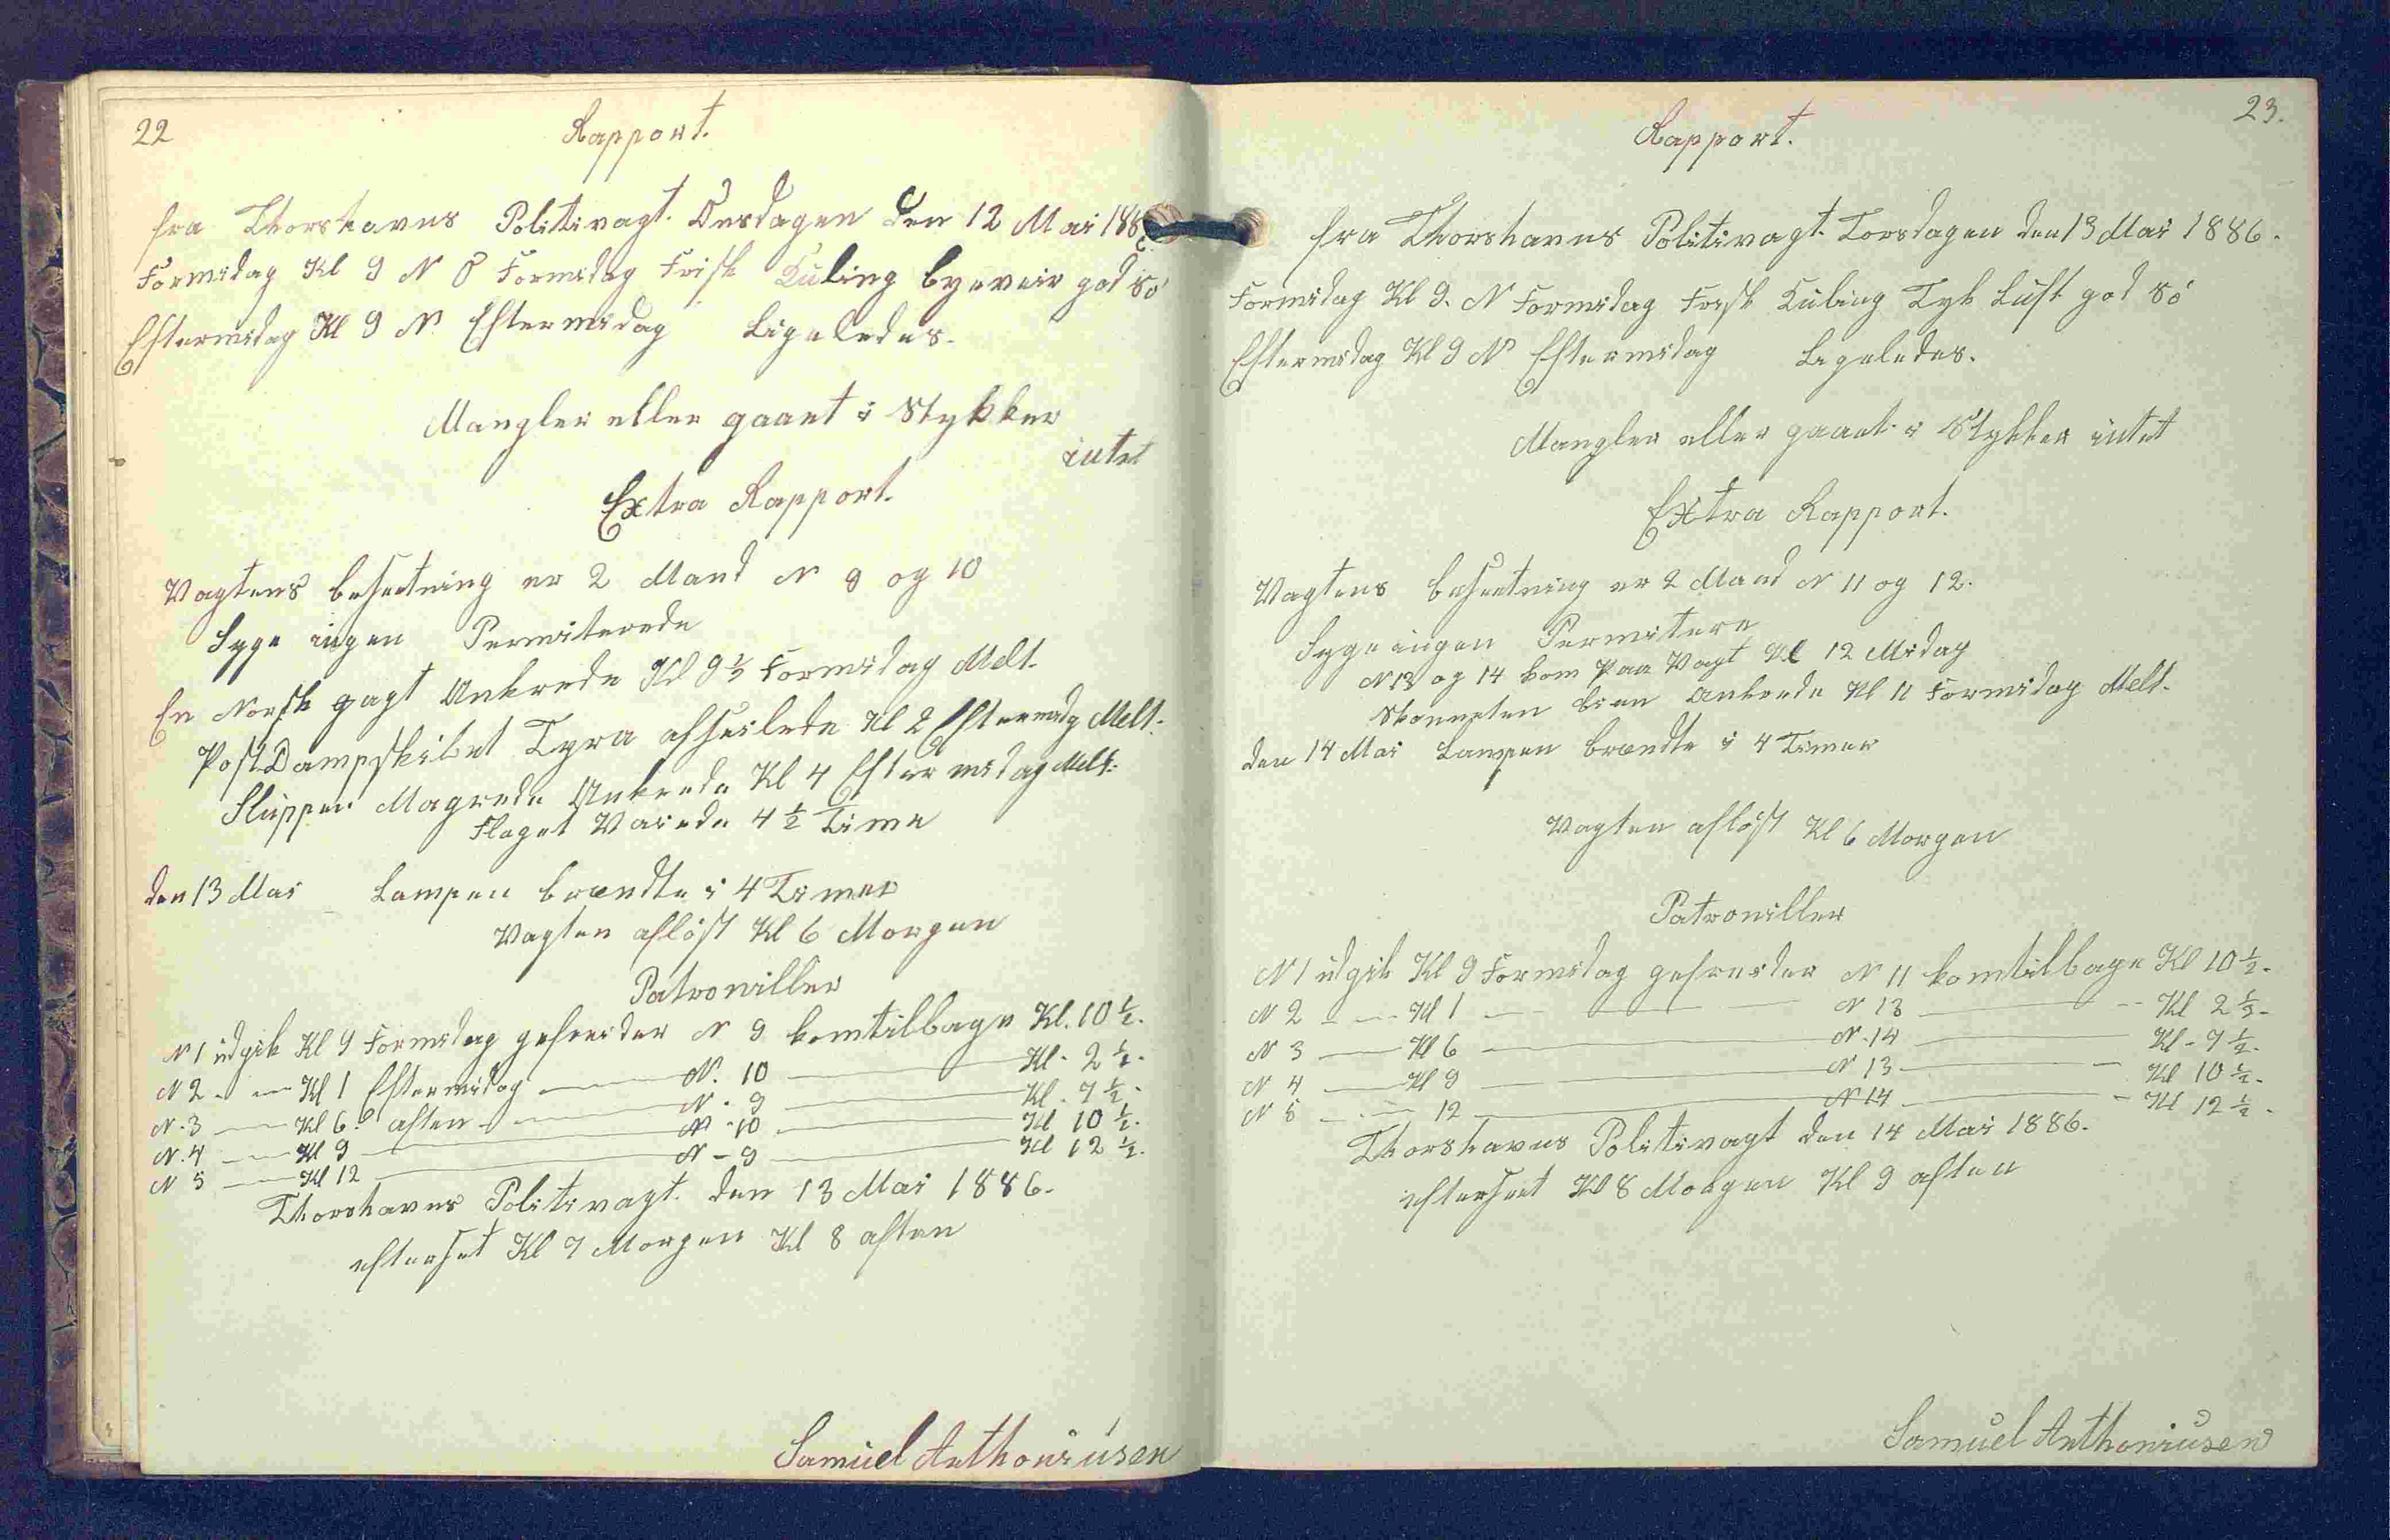 22
Rapport.
fra Thorshavns Politivagt. Onsdagen den 12 Mai 1886
Formidag Kl 9 N O Formidag Frisk Kuling byeveir god Sö
Eftermidag Kl 9 N. Eftermidag Ligeledes.
Mangler eller gaaet i Stykker
intet
Extra Rapport.
Vagtens besætning er 2 Mand N 9 og 10
Syge ingen Permiterede
En Norsk gagt Ankrede Kl 9½ Formidag Melt.
PostDampskibet Tyra afseilede Kl 2 Eftermidg Melt:
Sluppen Magrede Ankrede Kl 4 Eftermidag Melt:
Flaget Vaiede 4 ½ Time
den 13 Mai Lampen brændte i 4 Timer
Vagten aflöst Kl 6 Morgen
Patroniller
N 1 udgik Kl 9 Formidag gefreider N 9 komtilbage Kl. 10 ½.
N 2 - — Kl 1 Eftermidag — N. 10 — Kl. 2 ½.
N. 3 — Kl 6. aften — N. 9 — Kl. 7 ½.
N. 4 — Kl 9 — N. 10 — Kl 10 ½.
N 5 — Kl 12 — N - 9 — Kl 12 ½.
Thorshavns Politivagt. den 13 Mai 1886.
efterset Kl 7 Morgen Kl 8 aften
Samuel Anthoniusen
23.
Rapport.
fra Thorshavns Politivagt. Torsdagen den 13 Mai 1886.
Formidag Kl 9. N Formidag Frisk Kuling Tyk Luft god Sö
Eftermidag Kl 9 N Eftermidag Legeledes.
Mangler eller gaaet i Stykker intet
Extra Rapport.
Vagtens besætning er 2 Mand N 11 og 12.
Syge ingen Permitere
N 13 og 14 kom Paa Vagt Kl 12 Midag
Skonneten Ankrede Kl 11 Formidag Melt.
den 14 Mai Lampen brændte i 4 Timer
Vagten aflöst Kl 6 Morgen
Patroniller
N 1 udgik Kl 9 Formidag gefreider N 11 komtilbage Kl 10 ½.
N 2 — Kl 1 — N 13 — Kl 2 ½.
N 3 — Kl 6 — N. 14 — Kl - 7 ½.
N 4 — Kl 9 — N 13 — Kl 10 ½.
N 5 — 12 — N 14 — Kl 12 ½.
Thorshavns Politivagt den 14 Mai 1886.
efterseet Kl 8 Morgen Kl 9 aften
Samuel Anthoniusen